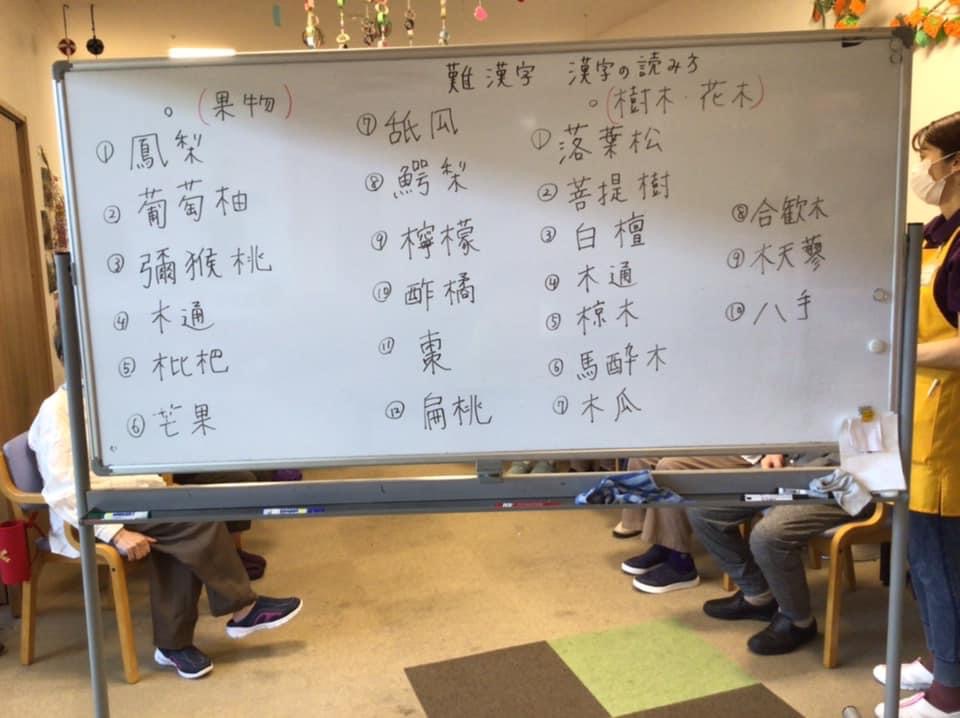 難漢字 漢字の読み方
○(果物)
① 鳳梨
② 葡萄柚
③ 彌猴桃
④ 木通
⑤ 枇杷
⑥ 芒果
⑦ 舐瓜
⑧ 鰐梨
⑨ 檸檬
⑩ 酢橘
⑪ 棗
⑫ 扁桃
○(樹木・花木)
① 落葉松
② 菩提樹
③ 白檀
④ 木通
⑤ 椋木
⑥ 馬酔木
⑦ 木瓜
⑧ 合歓木
⑨ 木天蓼
⑩ 八手